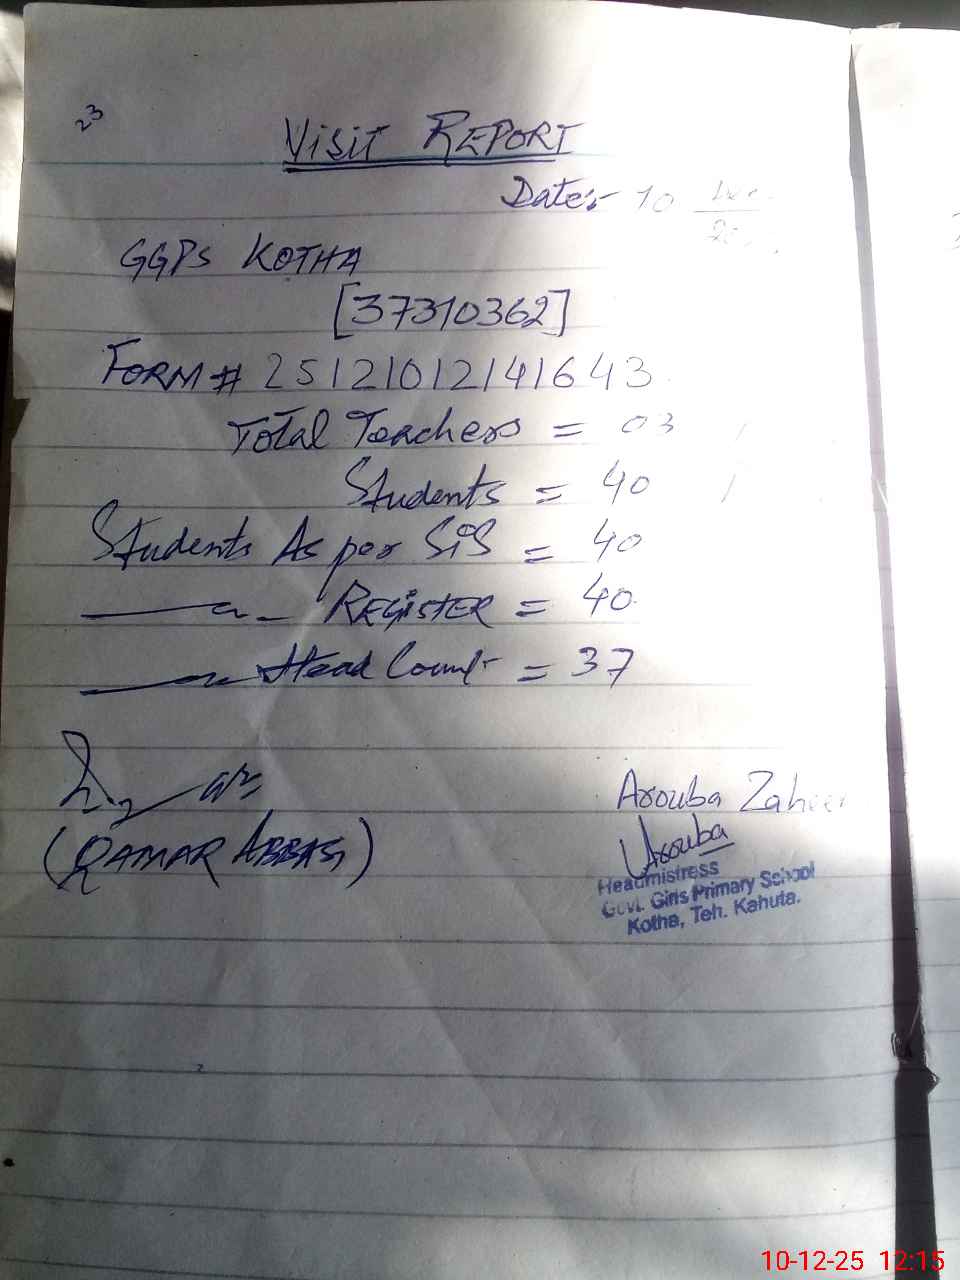 23
VISIT REPORT
Date:- 10 Dec
GGPS KOTHA
[37310362]
FORM # 25121012141643
Total Teachers = 03
Students = 40
Students As per SiS = 40
——〃— REGISTER = 40
——〃— Head Count = 37
(QAMAR ABBAS)
Arouba Zaheer
Arouba
Headmistress
Govt. Girls Primary School
Kotha, Teh. Kahuta.
10-12-25 12:15